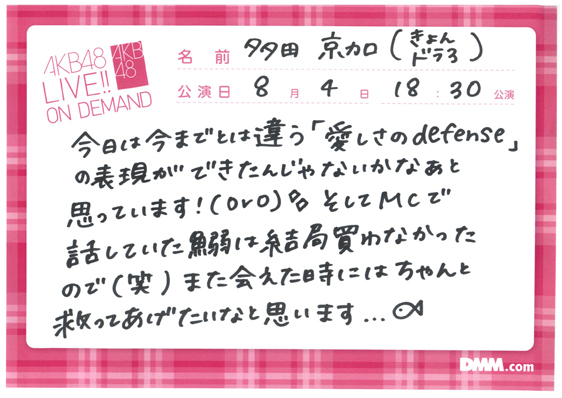 AKB48
LIVE!!
ON DEMAND
AKB
48
名前 多田 京加(きょんドラ3)
公演日 8月4日 18:30公演
今日は今までとは違う「愛しさのdefense」
の表現ができたんじゃないかなぁと
思っています!(OvO) そしてMCで
話していた鰯は結局買わなかった
ので(笑)また会えた時にはちゃんと
救ってあげたいなと思います...
DMM.com